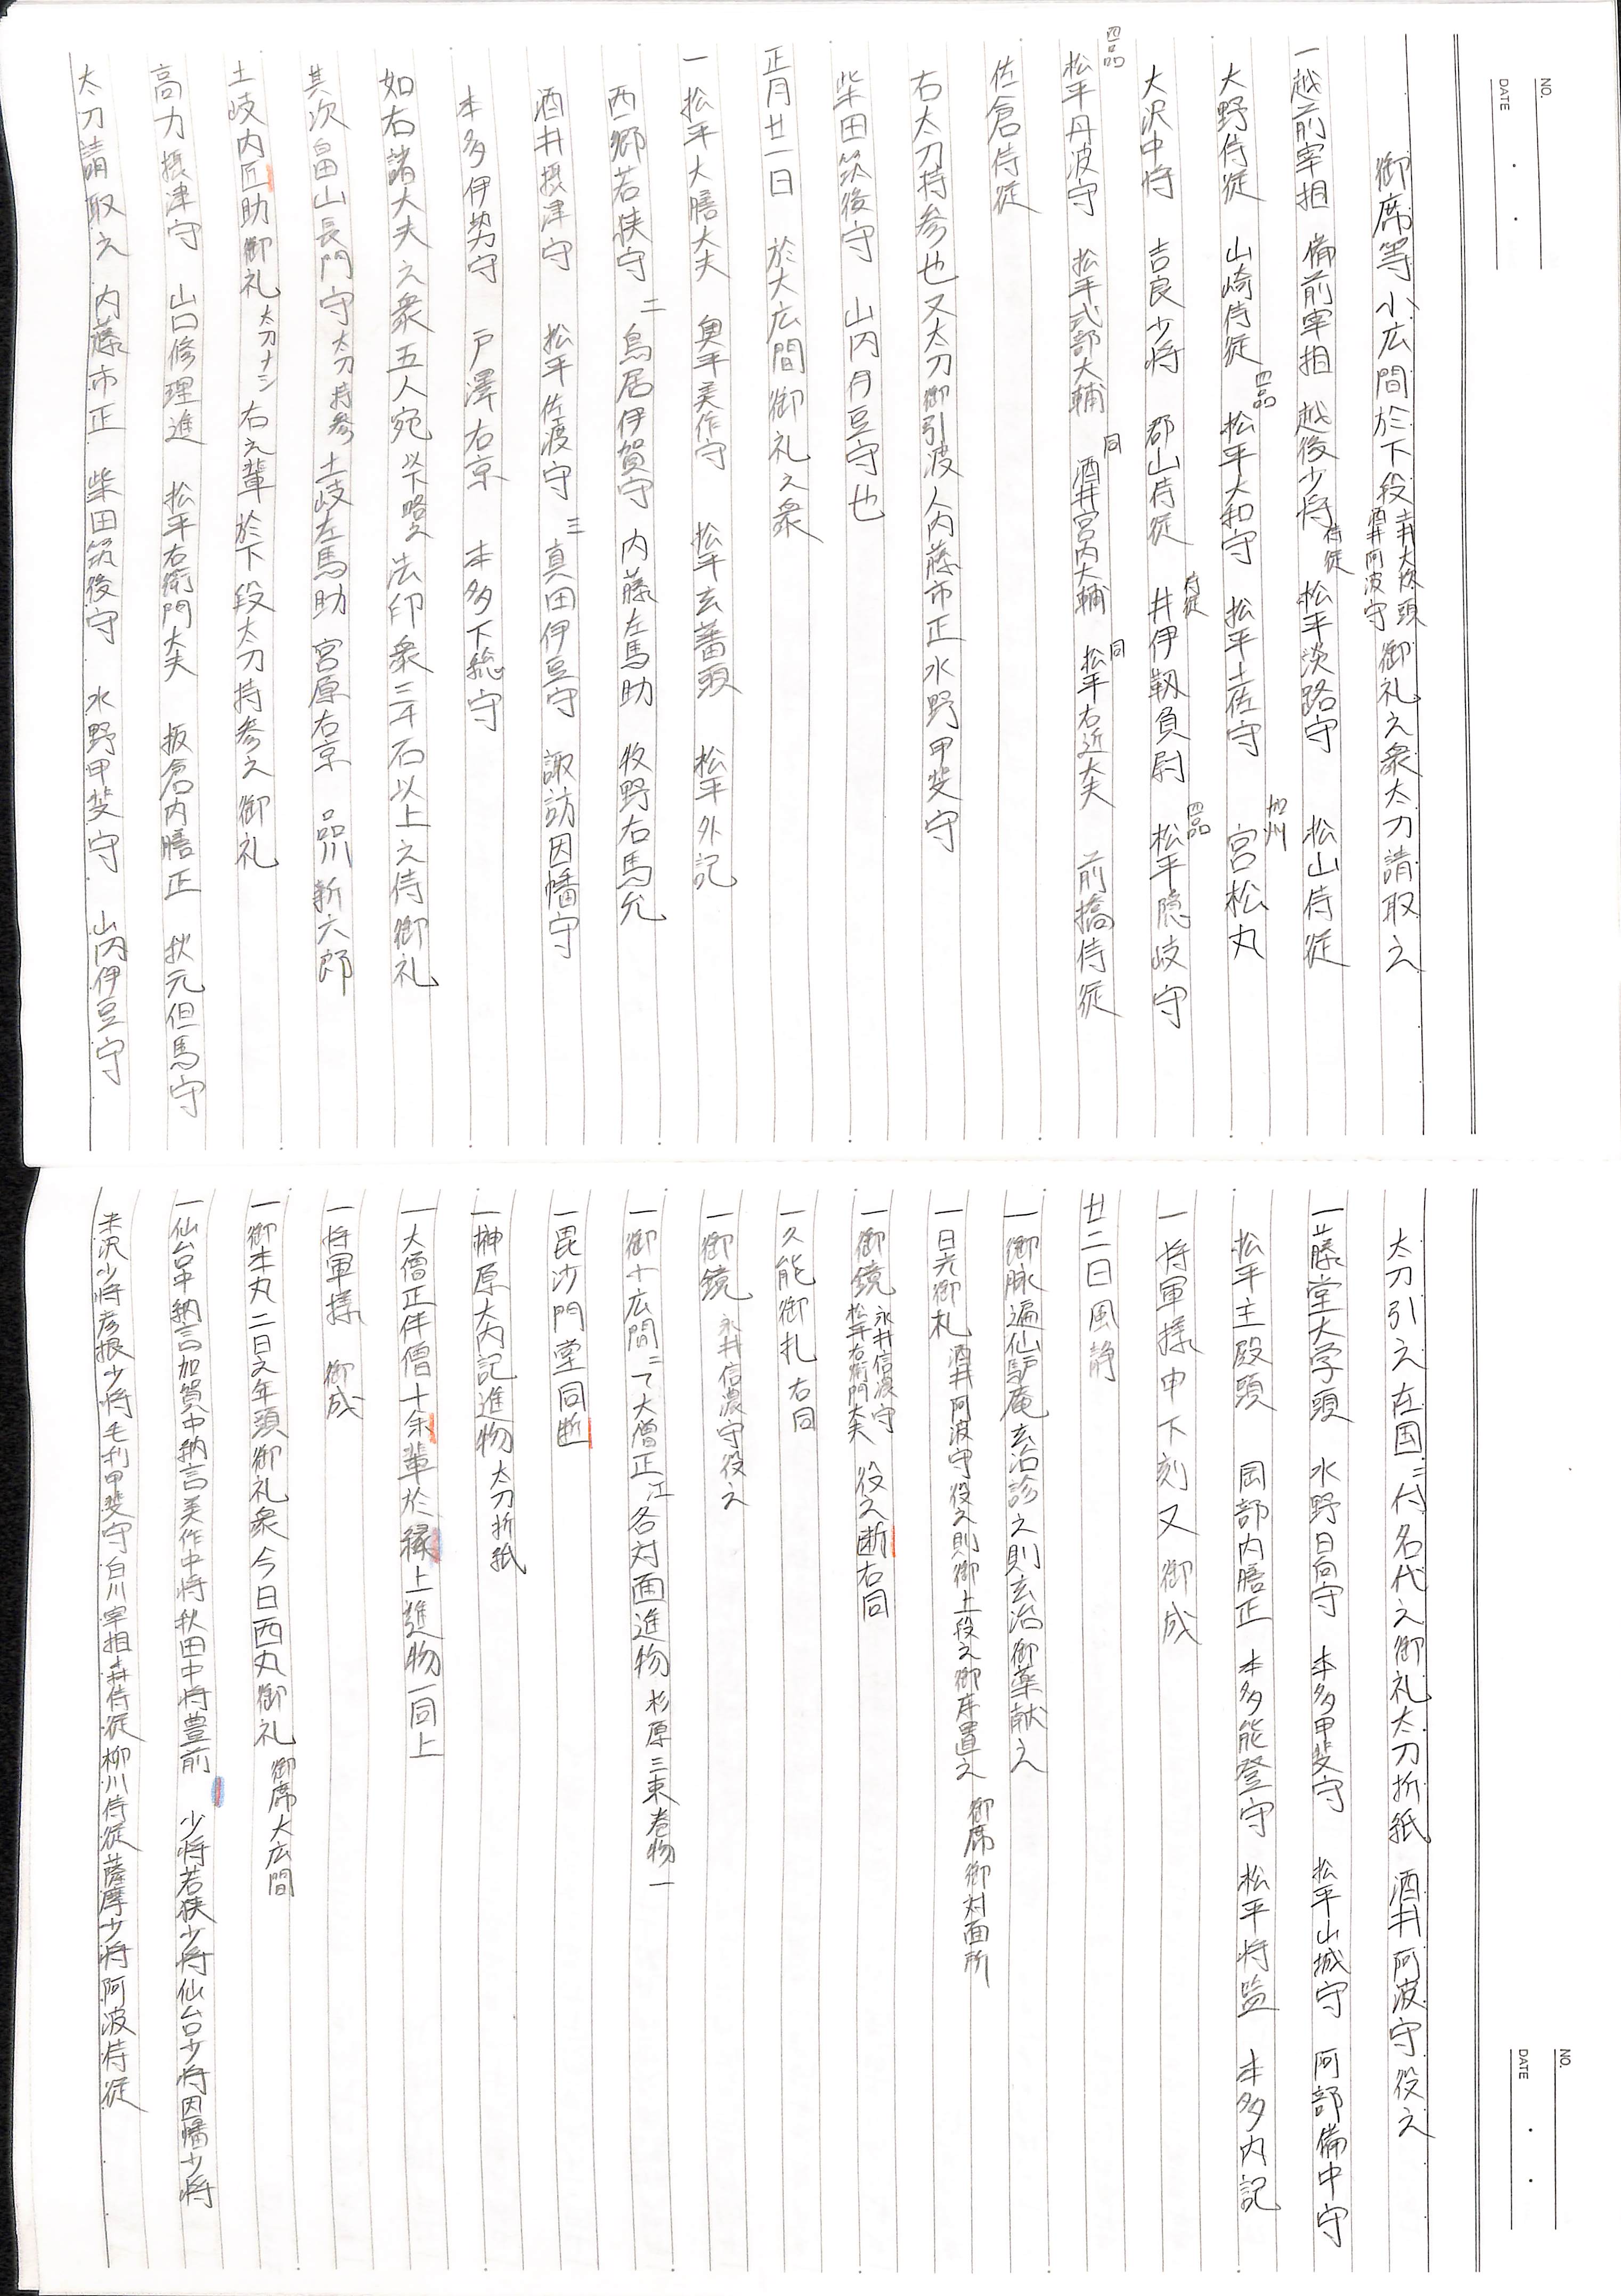 NO.
DATE
御席等小広間於下段 土井大炊頭 酒井阿波守 御礼之衆太刀請取之
一越前宰相 備前宰相 越後少将 侍従 松平淡路守 松山侍従
大野侍従 山崎侍従 四品 松平大和守 松平土佐守 加州 宮松丸
大沢中将 吉良少将 郡山侍従 侍従 井伊靱負尉 四品 松平隠岐守
四品 松平丹波守 松平式部大輔 同 酒井宮内大輔 同 松平右近大夫 前橋侍従
佐倉侍従
右太刀持参也又太刀御引渡人内藤市正水野甲斐守
柴田筑後守 山内丹豆守也
正月廿一日 於大広間御礼之衆
一松平大膳大夫 奥平美作守 松平玄蕃頭 松平外記
西郷若狭守 二 鳥居伊賀守 内藤左馬助 牧野右馬允
酒井摂津守 松平佐渡守 三 真田伊豆守 諏訪因幡守
本多伊勢守 戸澤右京 本多下総守
如右諸大夫之衆五人宛以下略之 法印衆三千石以上之侍御礼
其次畠山長門守 太刀持参 土岐左馬助 宮原右京 品川新六郎
土岐内匠助御礼 太刀ナシ 右之輩於下段太刀持参之御礼
高力摂津守 山口修理進 松平右衛門大夫 板倉内膳正 秋元但馬守
太刀請取之 内藤市正 柴田筑後守 水野甲斐守 山内伊豆守
NO.
DATE
太刀引之在国ニ付名代之御礼太刀折紙 酒井阿波守役之
一藤堂大学頭 水野日向守 本多甲斐守 松平山城守 阿部備中守
松平主殿頭 岡部内膳正 本多能登守 松平将監 本多内記
一将軍様申下刻又御成
廿二日風静
一御脉遍仙驢庵玄治診之則玄治御薬献之
一日光御札 酒井阿波守役之則御上段之御床置之 御席御対面所
一御鏡 永井信濃守 松平右衛門大夫 役之断右同
一久能御札 右同
一御鏡 永井信濃守役之
一御小広間ニて大僧正江各対面進物 杉原三束巻物一
一毘沙門堂同断
一榊原大内記進物 太刀折紙
一大僧正伴僧十余輩於縁上進物一同上
一将軍様 御成
一御本丸二日之年頭御礼衆今日西丸御礼 御席大広間
一仙台中納言加賀中納言美作中将秋田中将豊前 少将若狭少将仙台少将因幡少将
米沢少将彦根少将毛利甲斐守白川宰相森侍従柳川侍従薩摩少将阿波侍従